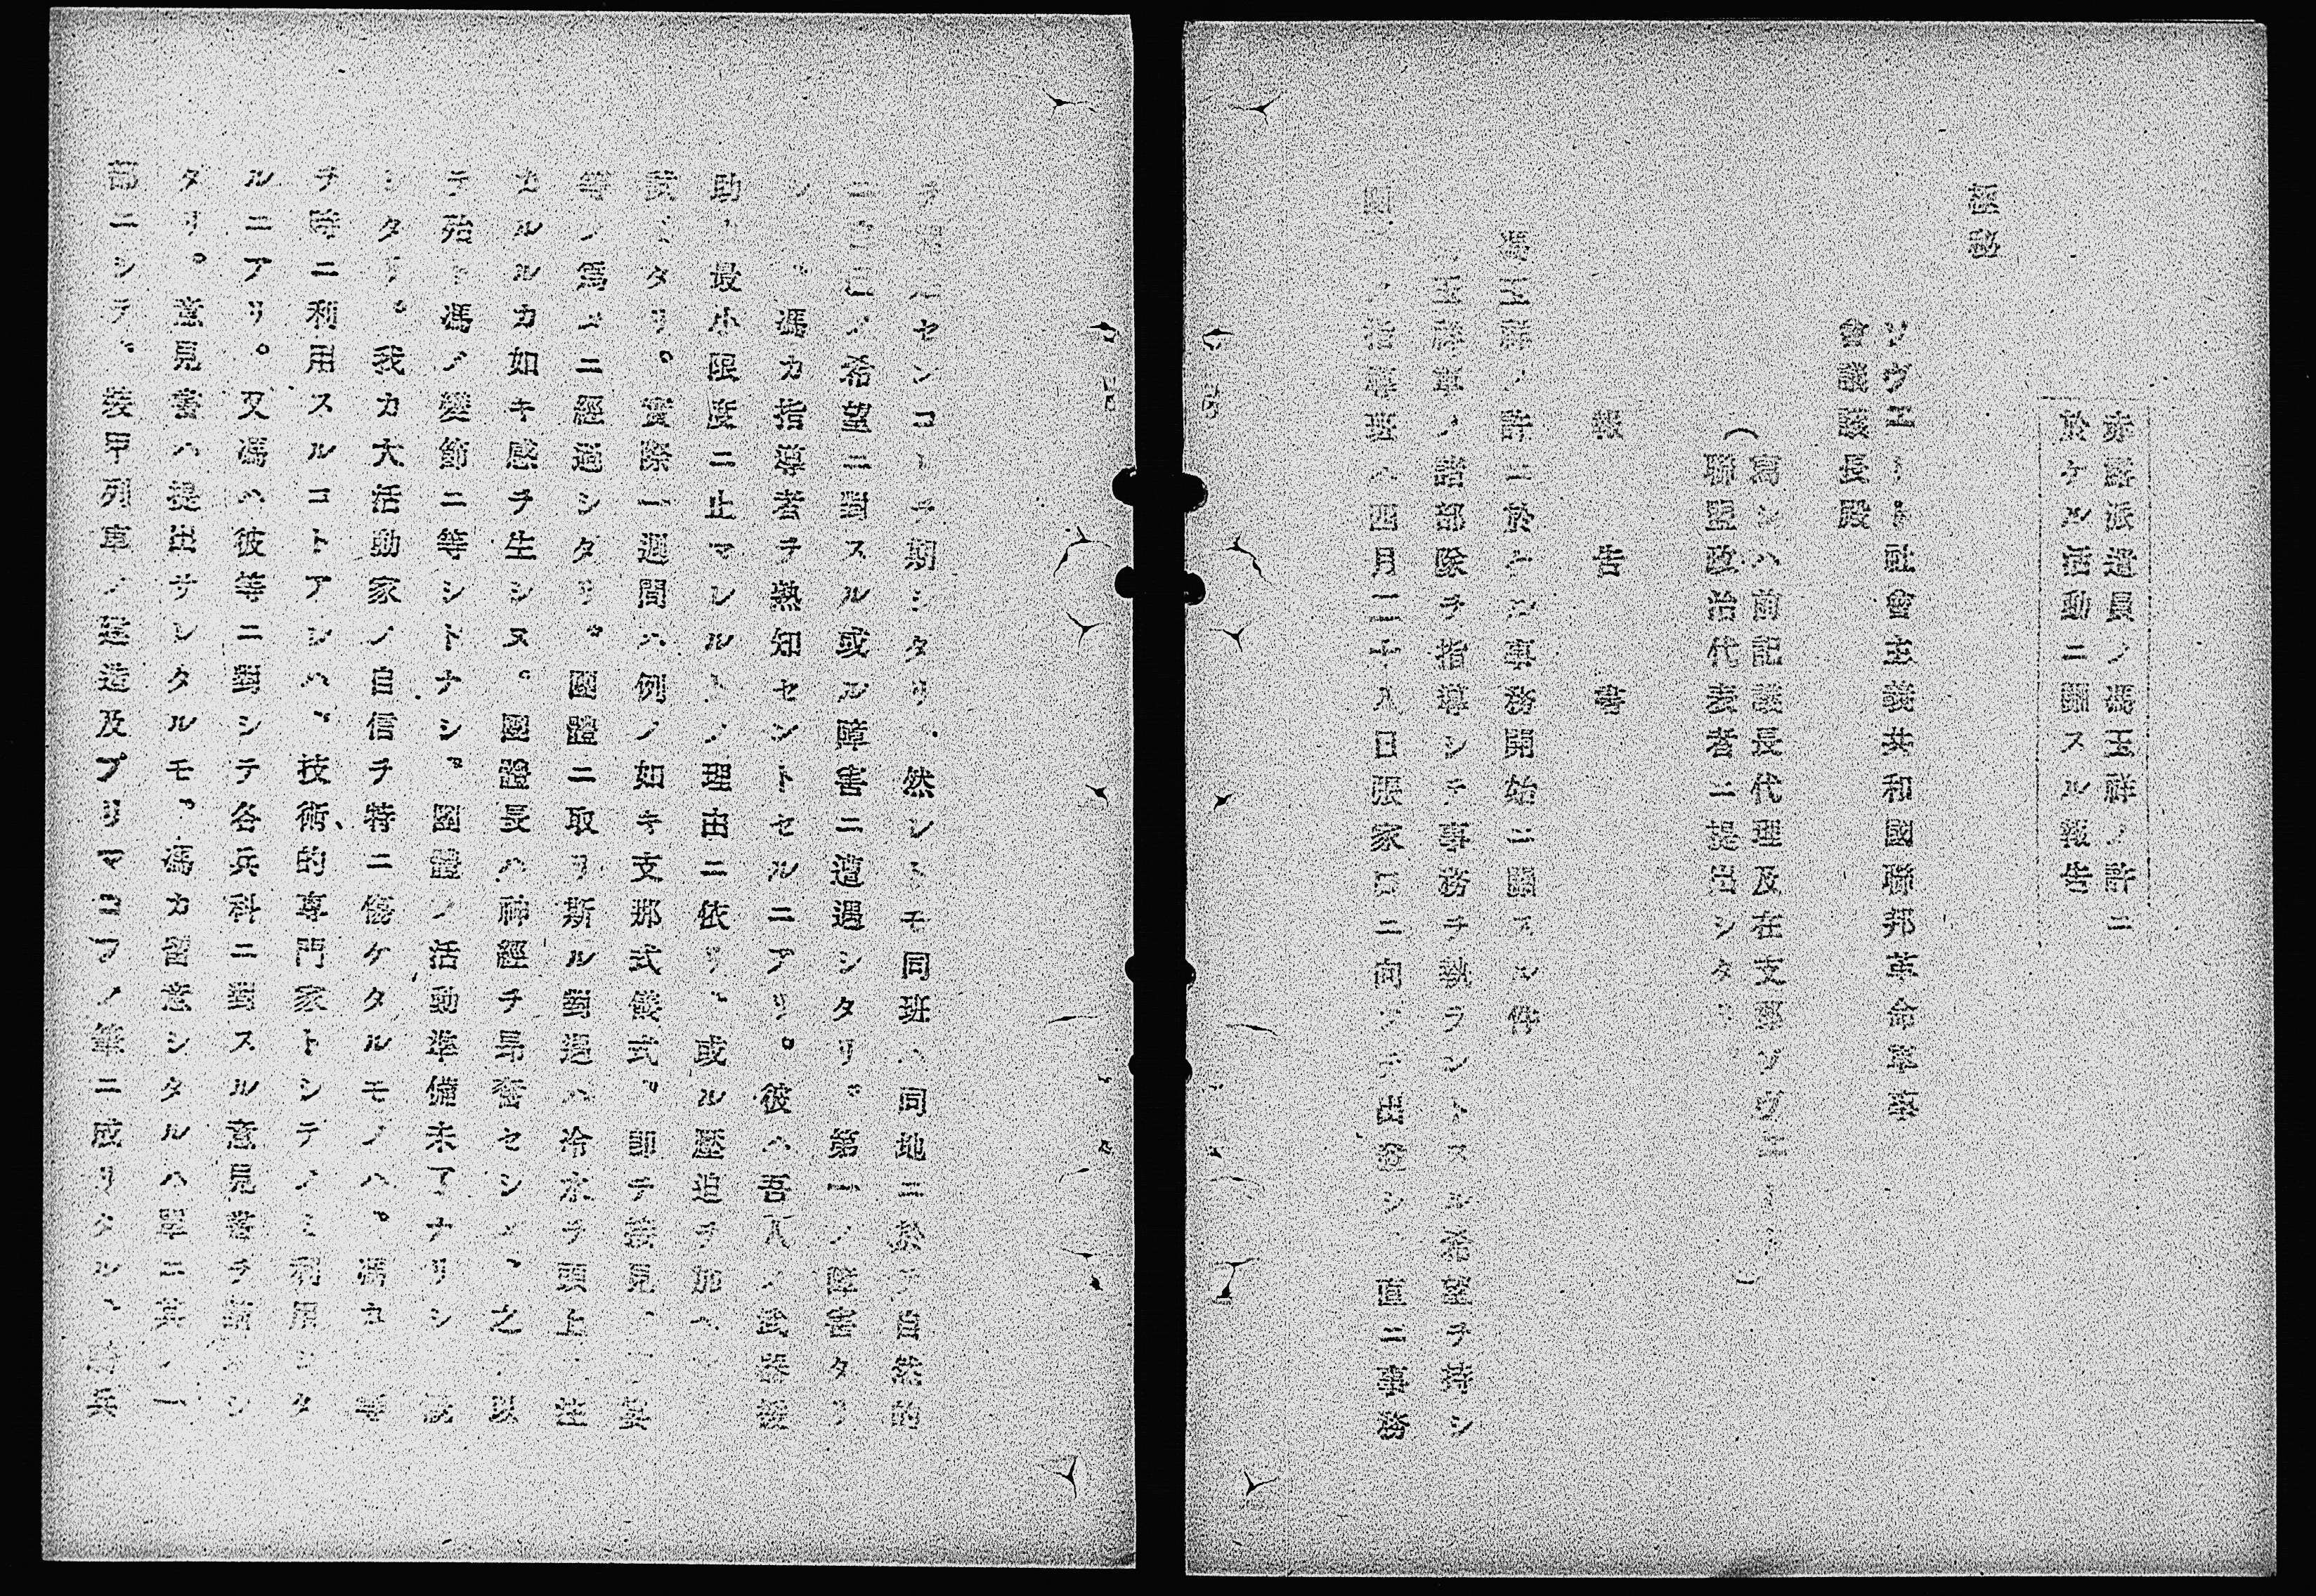 赤露派遣員ノ馮玉祥ノ許ニ
於ケル活動ニ關スル報告
極秘
ソヴエート社會主義共和國聯邦革命軍事
會議議長殿
(寫シハ前記議長代理及在支那ソヴエート
聯盟政治代表者ニ提出シタリ)
報告書
馮玉祥ノ許ニ於ケル事務開始ニ關スル件
玉祥軍ノ諸部隊ヲ指導シテ事務ヲ執ラントスル希望ヲ持シ
指導班ハ四月二十八日張家口ニ向ケテ出發シ、直ニ事務
セシコトヲ期シタリ、然レトモ同班ハ同地ニ於テ自然的
ニ自己ノ希望ニ對スル或ル障害ニ遭遇シタリ。第一ノ障害タリ
シハ、馮カ指導者ヲ熟知セントセルニアリ。彼ハ吾人ノ武器援
助ハ最小限度ニ止マレルトノ理由ニ依リ、或ル壓迫ヲ加ヘ
タリ。實際一週間ハ例ノ如キ支那式儀式、即チ接見、宴
等ノ爲メニ經過シタリ。團體ニ取リ斯ル對遇ハ冷水ヲ頭上ニ注
カルルカ如キ感ヲ生シヌ。團體長ハ神經ヲ昂奮セシメ、之ヲ以
テ殆ト馮ノ變節ニ等シトナシ。團體ノ活動準備未了ナリシ
シタリ。我カ大活動家ノ自信ヲ特ニ傷ケタルモノハ、馮ユ等
ヲ時ニ利用スルコトアレハ、技術的專門家トシテノミ利用シタ
ルニアリ。又馮ハ彼等ニ對シテ各兵科ニ對スル意見書ヲ請求シ
タリ。意見書ハ提出サレタルモ、馮カ留意シタルハ單ニ其ノ一
部ニシテ、裝甲列車ノ建造及プリマコフノ筆ニ成リタル、騎兵